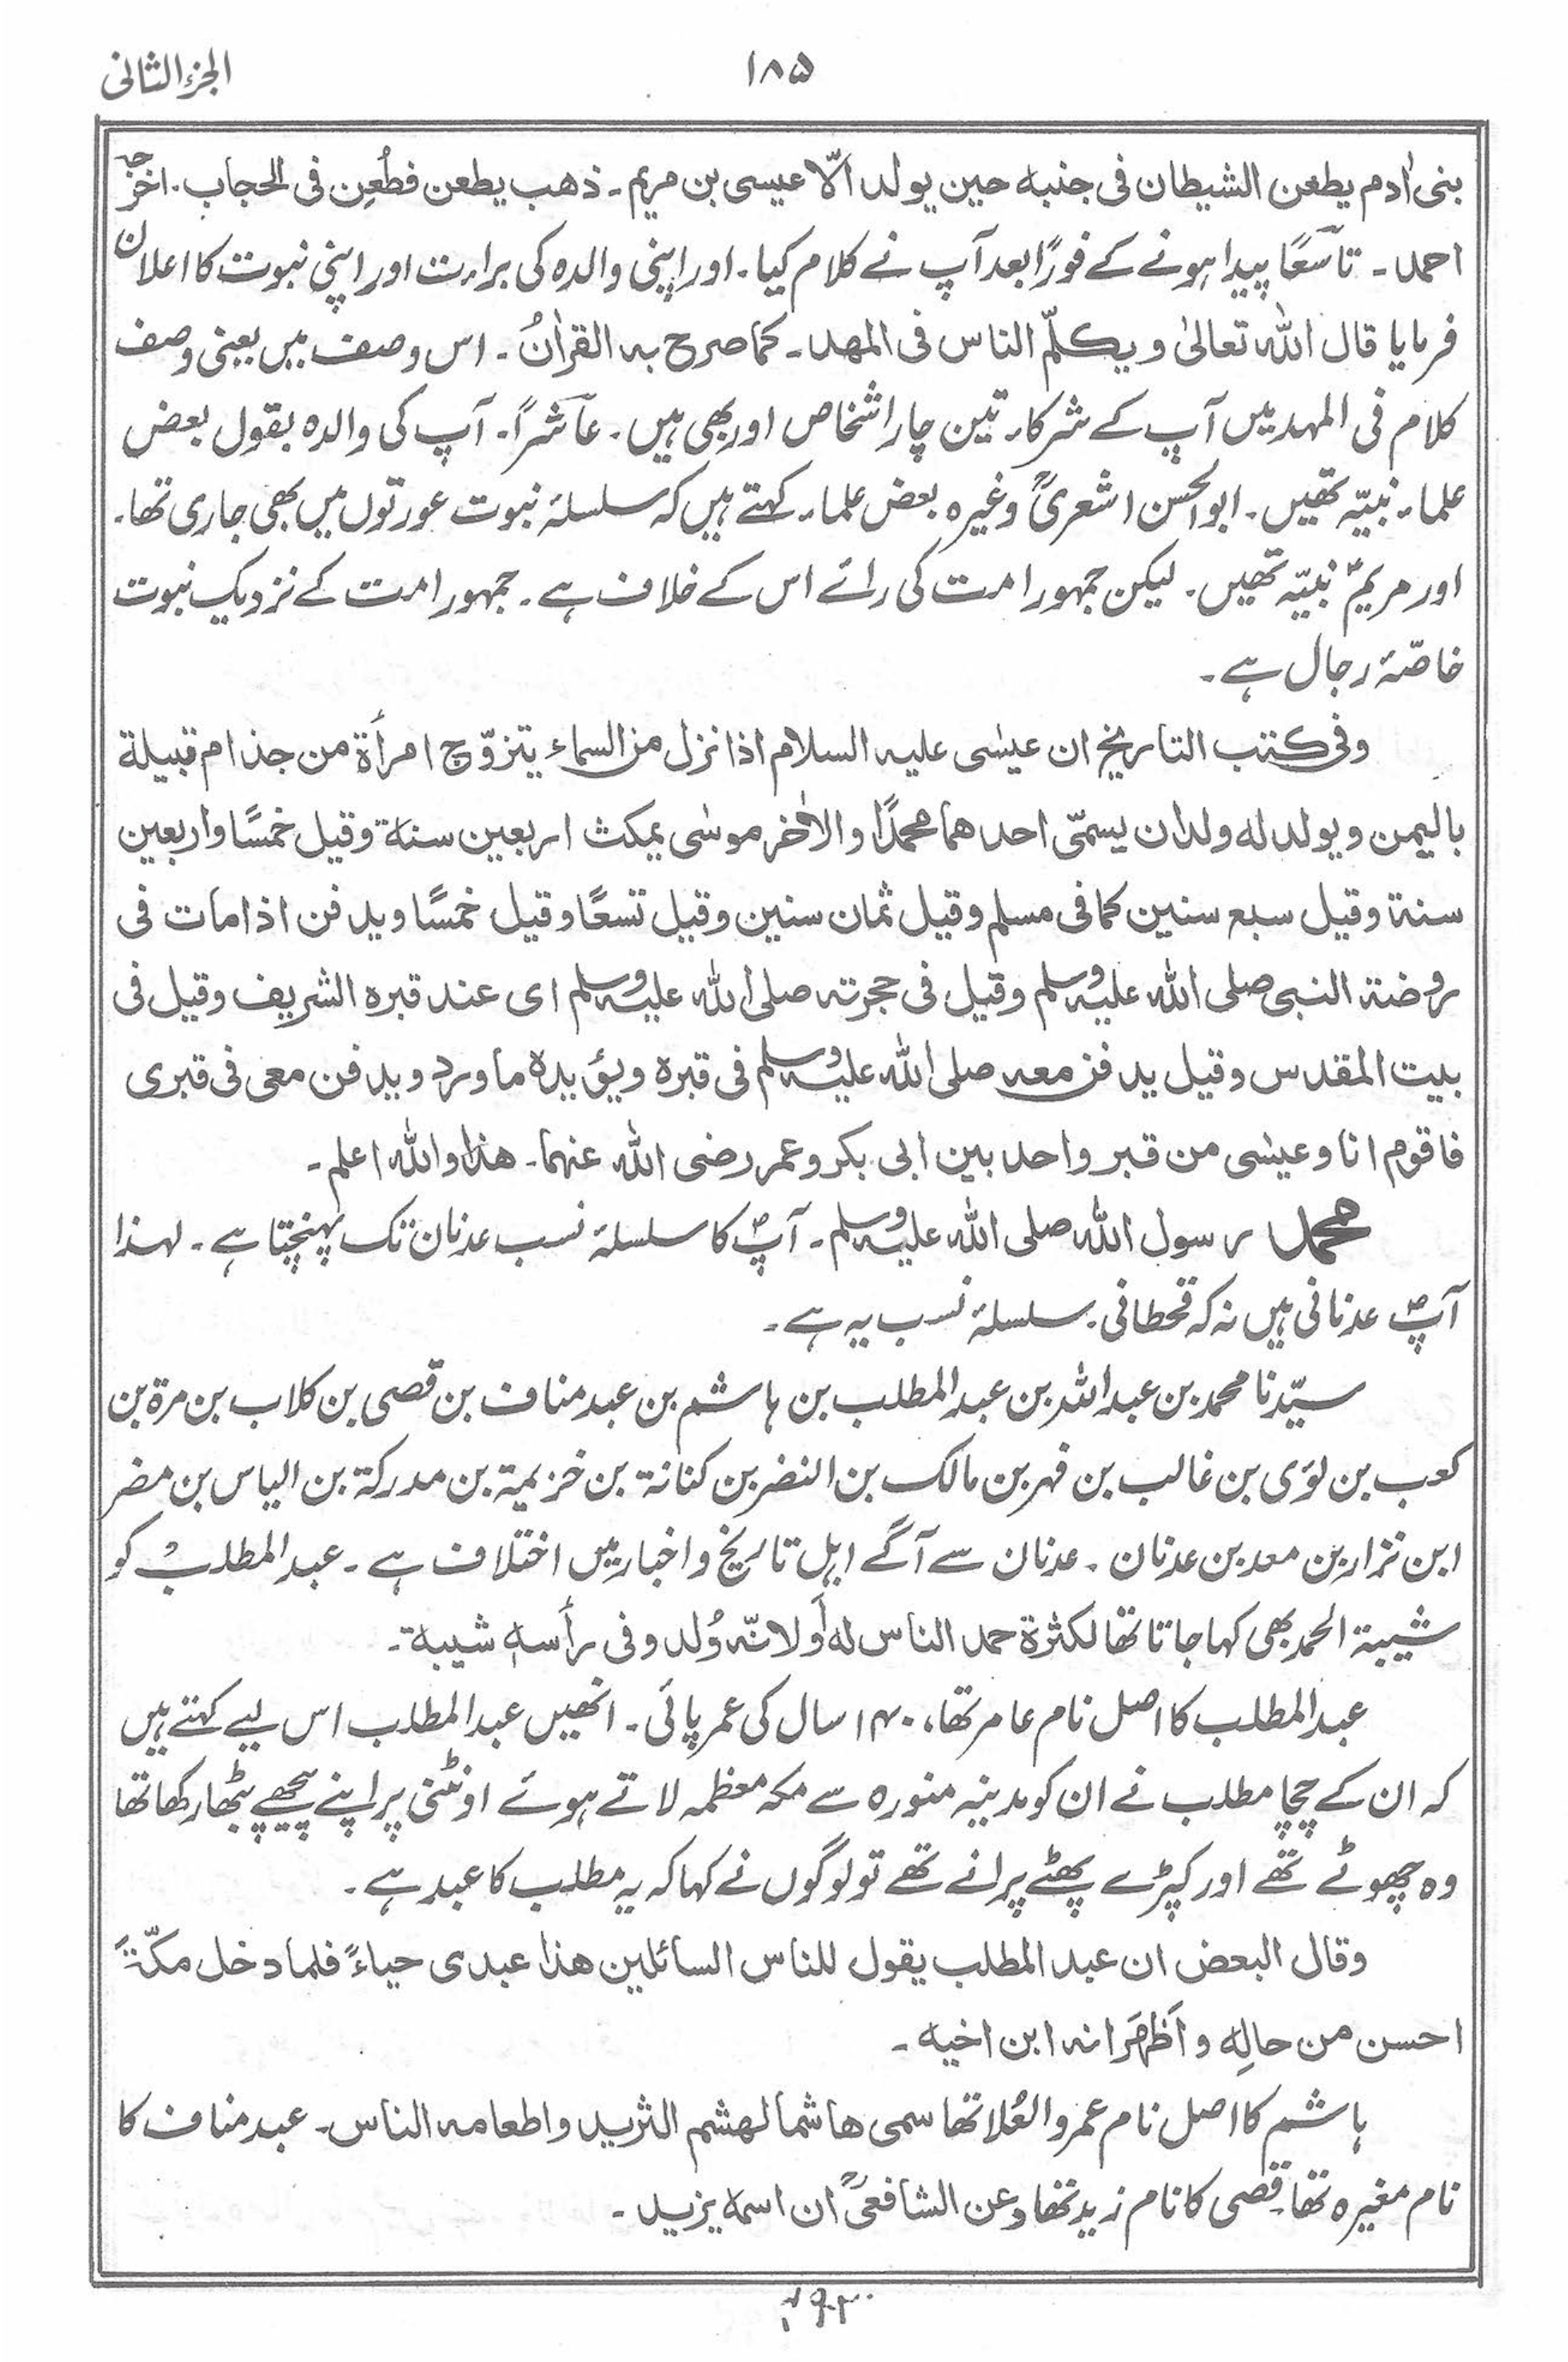 الجزء الثانی
۱۸۵
بنی اٰدم یطعن الشیطان فی جنبه حین یولد الّا عیسی بن مریم ۔ ذهب یطعن فطُعِن فی الحجاب ۔ اخرجه
احمد ۔ تاسعًا پیدا ہونے کے فورًا بعد آپ نے کلام کیا ۔ اور اپنی والدہ کی براءت اور اپنی نبوت کا اعلان
فرمایا قال اللّٰہ تعالیٰ و یکلّم الناس فی المهد ۔ کما صرح به القراٰنُ ۔ اس وصف میں یعنی وصف
کلام فی المہد میں آپ کے شرکاء تین چار اشخاص اور بھی ہیں ۔ عاشرًا ۔ آپ کی والدہ بقول بعض
علماء نبیّہ تھیں ۔ ابو الحسن اشعریؒ وغیرہ بعض علماء کہتے ہیں کہ سلسلۂ نبوت عورتوں میں بھی جاری تھا ۔
اور مریمؑ نبیّہ تھیں ۔ لیکن جمہور امت کی رائے اس کے خلاف ہے ۔ جمہور امت کے نزدیک نبوت
خاصّۂ رجال ہے ۔
وفی کتب التاریخ ان عیسٰی علیه السلام اذا نزل من السماء یتزوّج امرأة من جذام قبیلة
بالیمن و یولد له ولدان یسمّی احدهما محمدًا والاٰخر موسٰی یمکث اربعین سنة وقیل خمسًا واربعین
سنة وقیل سبع سنین کما فی مسلم وقیل ثمان سنین وقیل تسعًا وقیل خمسًا ویدفن اذا مات فی
روضة النبی صلی اللّٰہ علیہ وسلم وقیل فی حجرته صلی اللّٰہ علیہ وسلم ای عند قبره الشریف وقیل فی
بیت المقدس وقیل یدفن معه صلی اللّٰہ علیہ وسلم فی قبره ویؤیده ما ورد ویدفن معی فی قبری
فاقوم انا وعیسٰی من قبر واحد بین ابی بکر وعمر رضی اللّٰہ عنہما ۔ هذا واللّٰہ اعلم ۔
محمد رسول اللّٰہ صلی اللّٰہ علیہ وسلم ۔ آپؐ کا سلسلۂ نسب عدنان تک پہنچتا ہے ۔ لہٰذا
آپؐ عدنانی ہیں نہ کہ قحطانی ۔ سلسلۂ نسب یہ ہے ۔
سیّدنا محمد بن عبد اللّٰہ بن عبد المطلب بن ہاشم بن عبد مناف بن قصی بن کلاب بن مرۃ بن
کعب بن لؤی بن غالب بن فہر بن مالک بن النضر بن کنانۃ بن خزیمۃ بن مدرکۃ بن الیاس بن مضر
ابن نزار بن معد بن عدنان ۔ عدنان سے آگے اہل تاریخ و اخبار میں اختلاف ہے ۔ عبد المطلب کو
شیبۃ الحمد بھی کہا جاتا تھا لکثرة حمد الناس له أو لانّه وُلد وفی رأسه شیبة ۔
عبد المطلب کا اصل نام عامر تھا ، ۱۴۰ سال کی عمر پائی ۔ انھیں عبد المطلب اس لیے کہتے ہیں
کہ ان کے چچا مطلب نے ان کو مدینہ منورہ سے مکہ معظمہ لاتے ہوئے اونٹنی پر اپنے پیچھے بٹھا رکھا تھا
وہ چھوٹے تھے اور کپڑے پھٹے پرانے تھے تو لوگوں نے کہا کہ یہ مطلب کا عبد ہے ۔
وقال البعض ان عبد المطلب یقول للناس السائلین هذا عبدی حیاءً فلما دخل مکّةَ
احسن من حالِه و اَظهَرَ انه ابن اخیه ۔
ہاشم کا اصل نام عمرو العُلا تھا سمی هاشما لهشم الثرید واطعامه الناس ۔ عبد مناف کا
نام مغیرہ تھا ۔ قصی کا نام زید تھا وعن الشافعیؒ ان اسمه یزید ۔